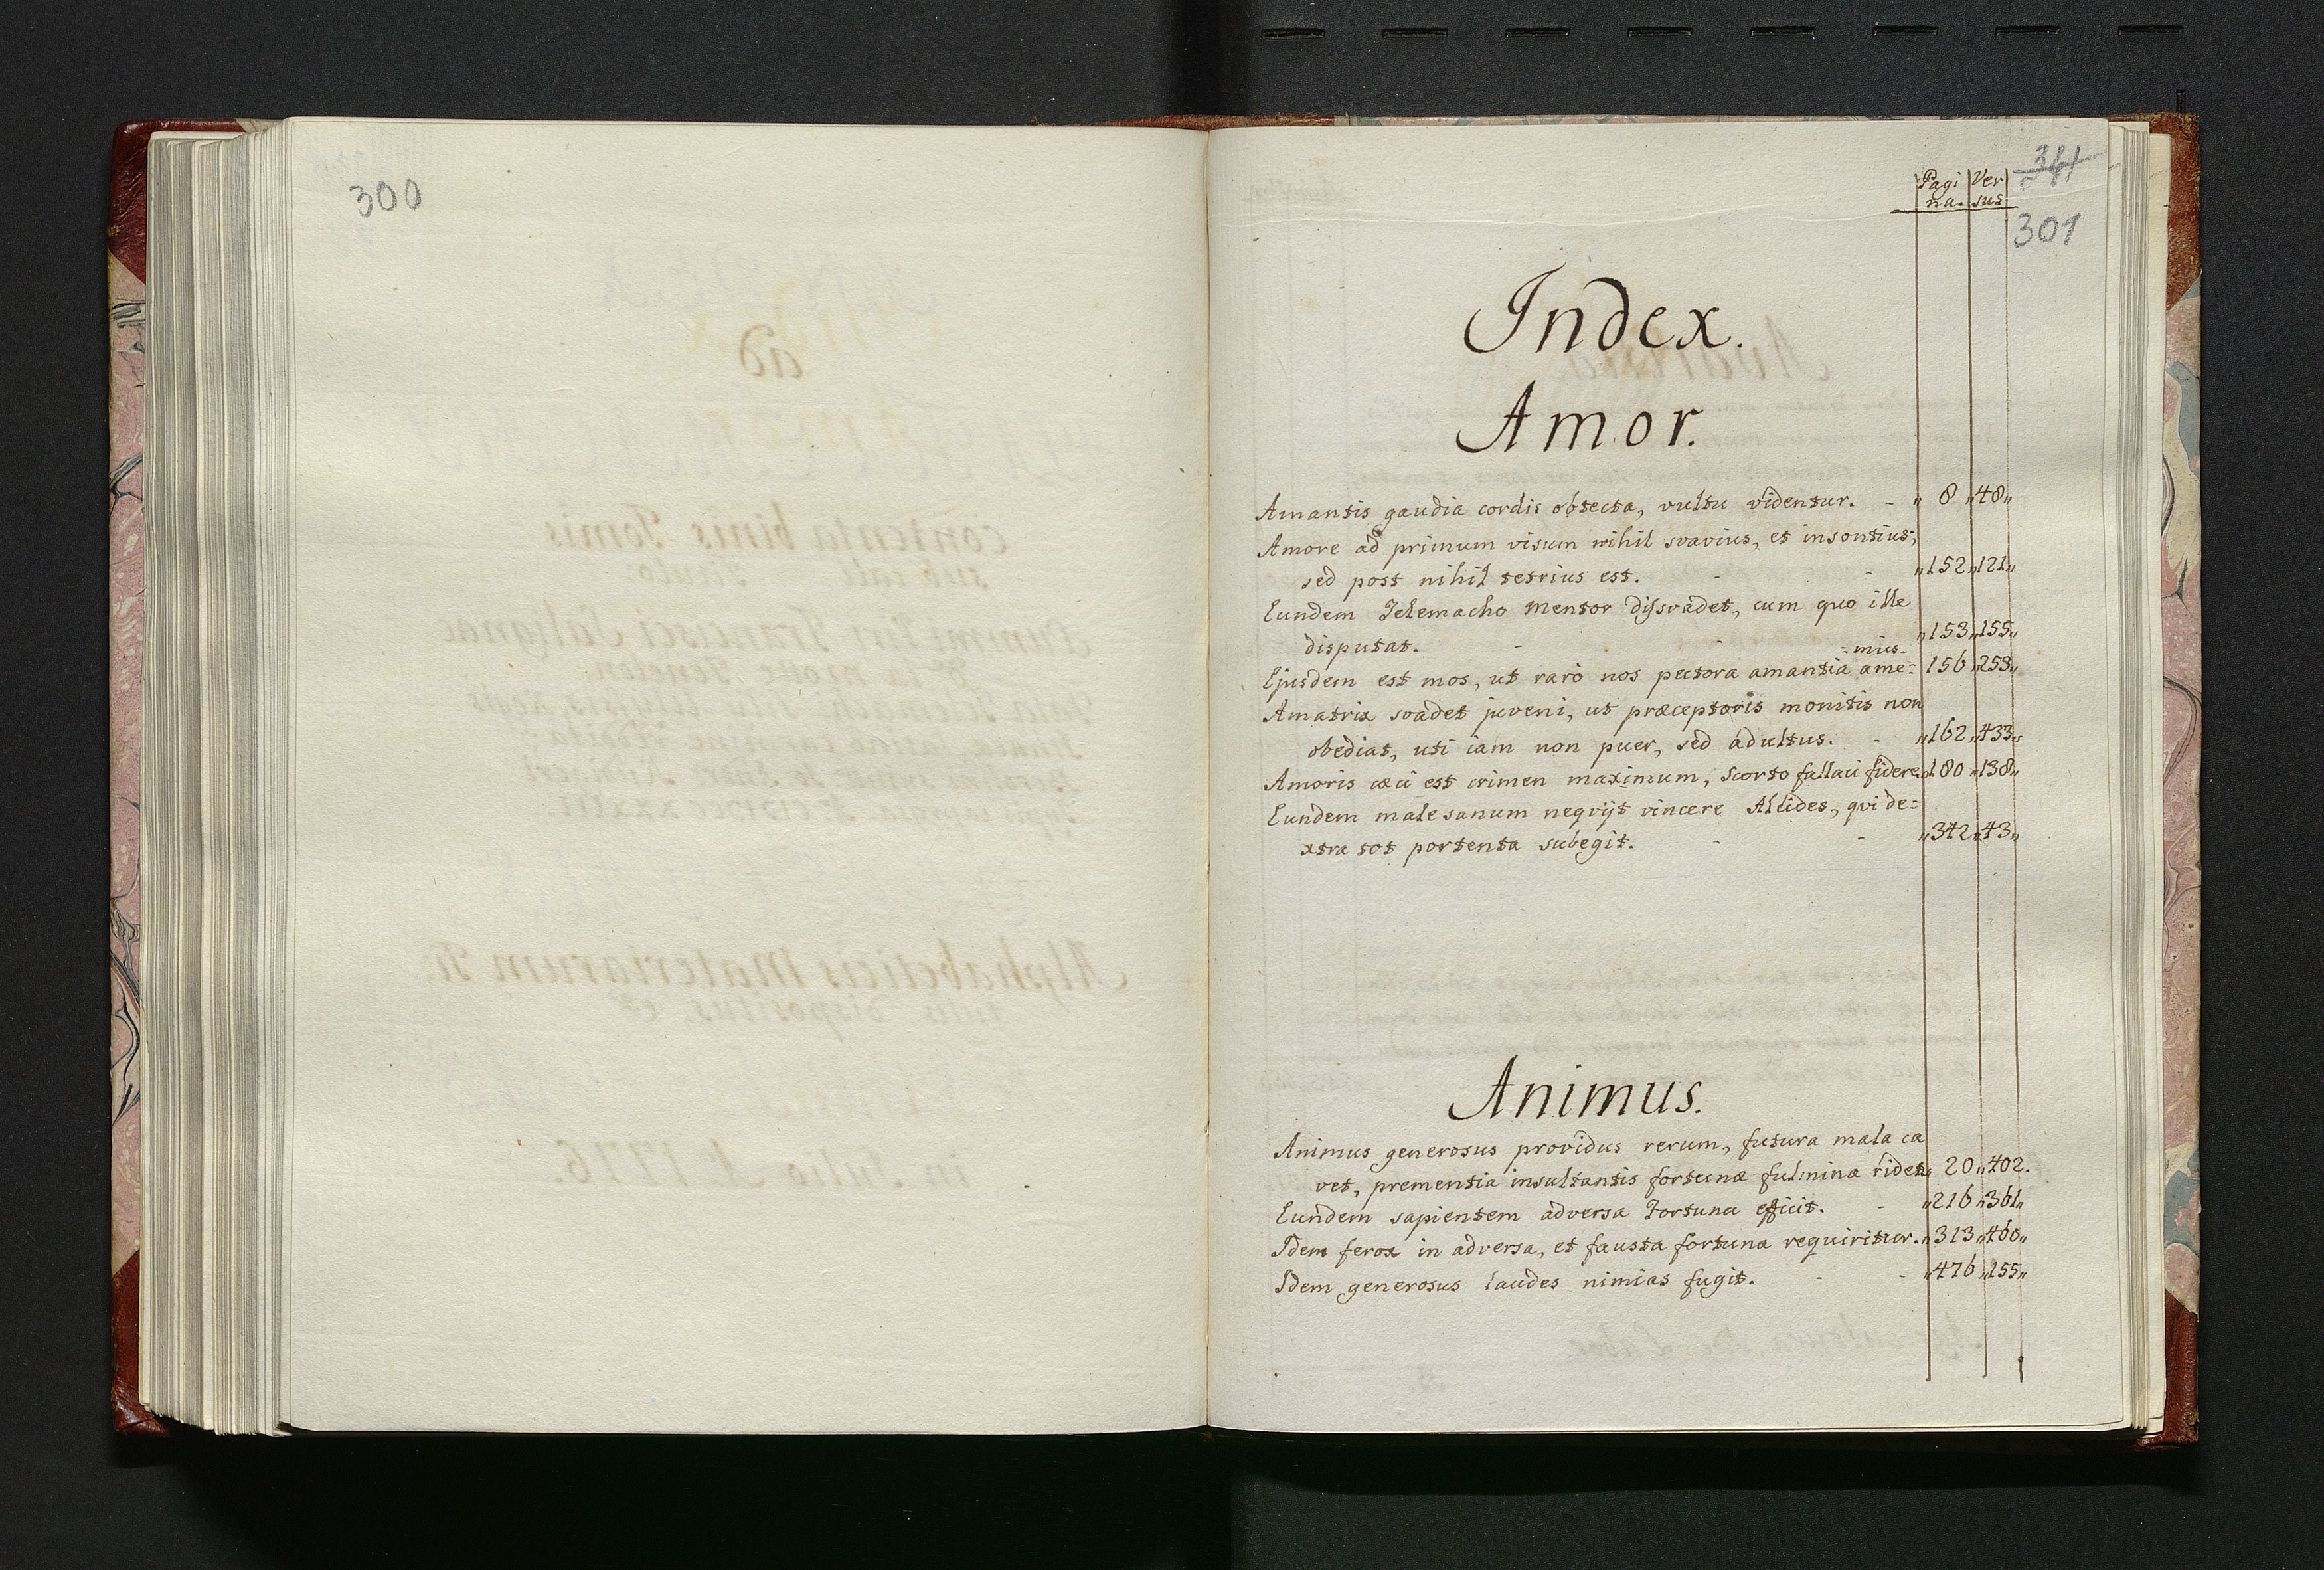 300
Pagi Ver 341
na. sus
301
Index.
Amor.
Amantis gaudia cordis obtecta, vultu videntur. - „ 8 „48„
Amore ad primum visum nihil svavius, et insontius;
sed post nihil tetrius est. - - „152„121„
Eundem Telemacho Mentor dissvadet, cum quo ille
disputat. - - „153„155„
=mus-
Ejusdem est mos, ut raro nos pectora amantia ame= 156„253„
Amatrix svadet juveni, ut præceptoris monitis non
obediat, uti iam non puer, sed adultus. - „162„433„
Amoris cæci est crimen maximum, scorto fallaci fidere.„180„138„
Eundem malesanum neqvijt vincere Alcides, qvi de=
xtra tot portenta subegit. - - „342„43„
Animus.
Animus generosus providus rerum, futura mala ca
vet, prementia insultantis fortunæ fulmina ridet„ 20„402.
Eundem sapientem adversa Fortuna efficit. - „216„361„
Idem ferox in adversa, et fausta fortuna requiritur.„313„460„
Idem generosus laudes nimias fugit. - - „476„155„